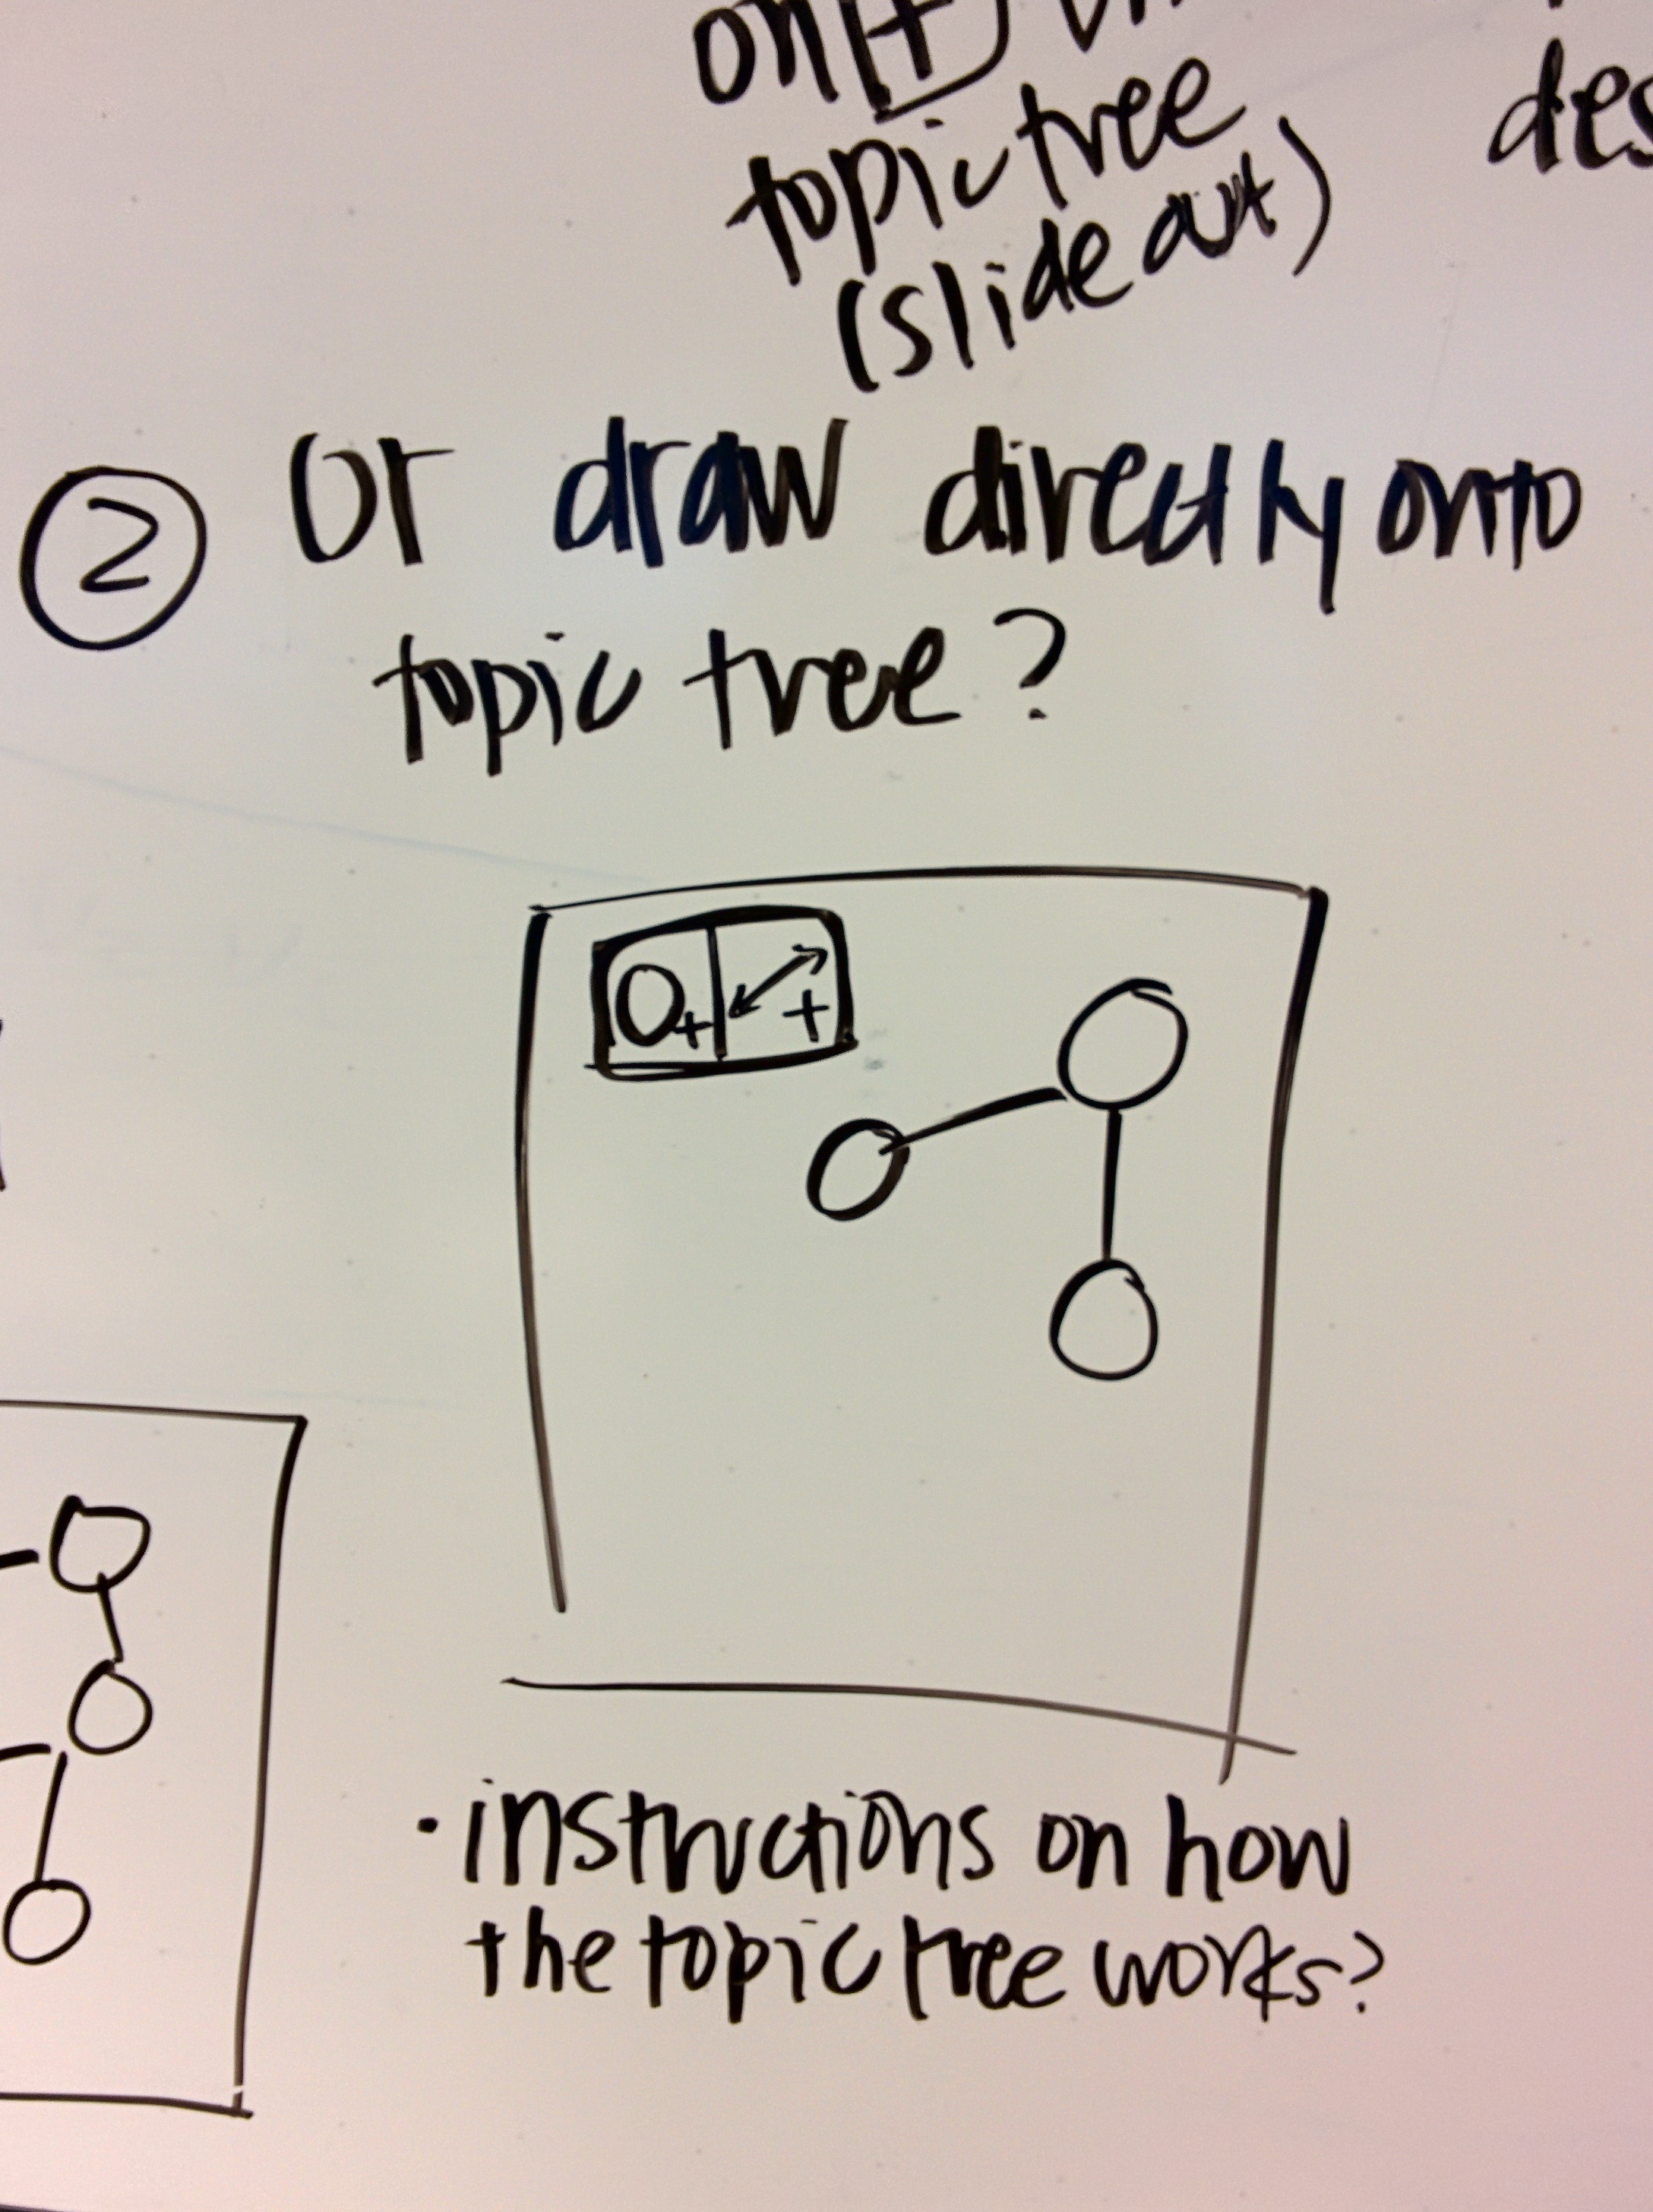 on [+]
topic tree
(slide out)
des
② Or draw directly onto
topic tree?
O+ +
• instructions on how
the topic tree works?